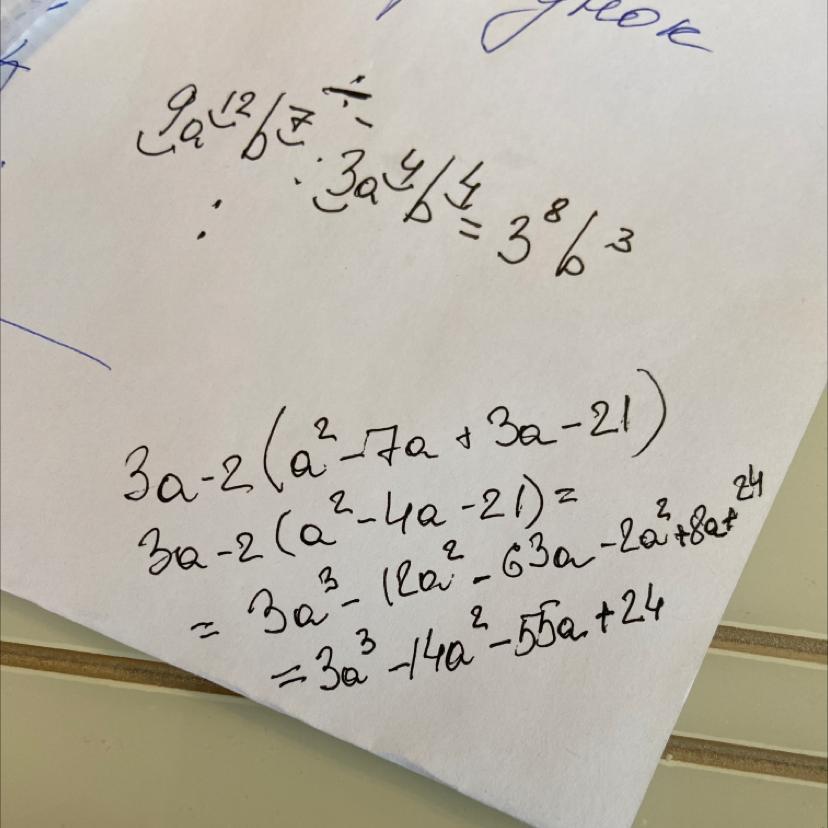 9a¹²b⁷ ÷
: 3a⁴b⁴ = 3⁸b³
:
3a-2(a²-7a+3a-21)
3a-2(a²-4a-21)=
= 3a³-12a²-63a-2a²+8a+24
=3a³-14a²-55a+24